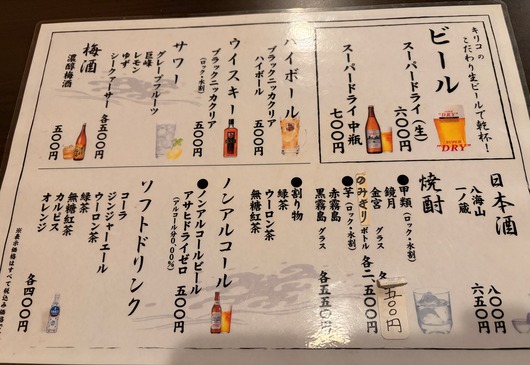 キリコの
こだわり生ビールで乾杯!
ビール
スーパードライ(生)
六〇〇円
スーパードライ 中瓶
七〇〇円
"DRY"
SUPER
"DRY"
ハイボール
ブラックニッカクリア
ハイボール
五〇〇円
ウイスキー
ブラックニッカクリア
(ロック・水割)
五〇〇円
サワー
グレープフルーツ
巨峰
レモン
ゆず
シークァーサー
各五〇〇円
梅酒
濃醇梅酒
五〇〇円
日本酒
八海山
八〇〇円
一ノ蔵
六五〇円
焼酎
●甲類(ロック・水割)
鏡月
グラス
各五〇〇円
金宮
のみきり
ボトル
各二、五
●芋(ロック・水割)
赤霧島
黒霧島
グラス
各五五〇円
●割り物
緑茶
ウーロン茶
無糖紅茶
各五〇円
ノンアルコール
●ノンアルコールビール
アサヒドライゼロ
(アルコール分0.00%)
五〇〇円
ソフトドリンク
コーラ
ジンジャーエール
ウーロン茶
緑茶
無糖紅茶
カルピス
オレンジ
各四〇〇円
※表示価格はすべて税込み価格で